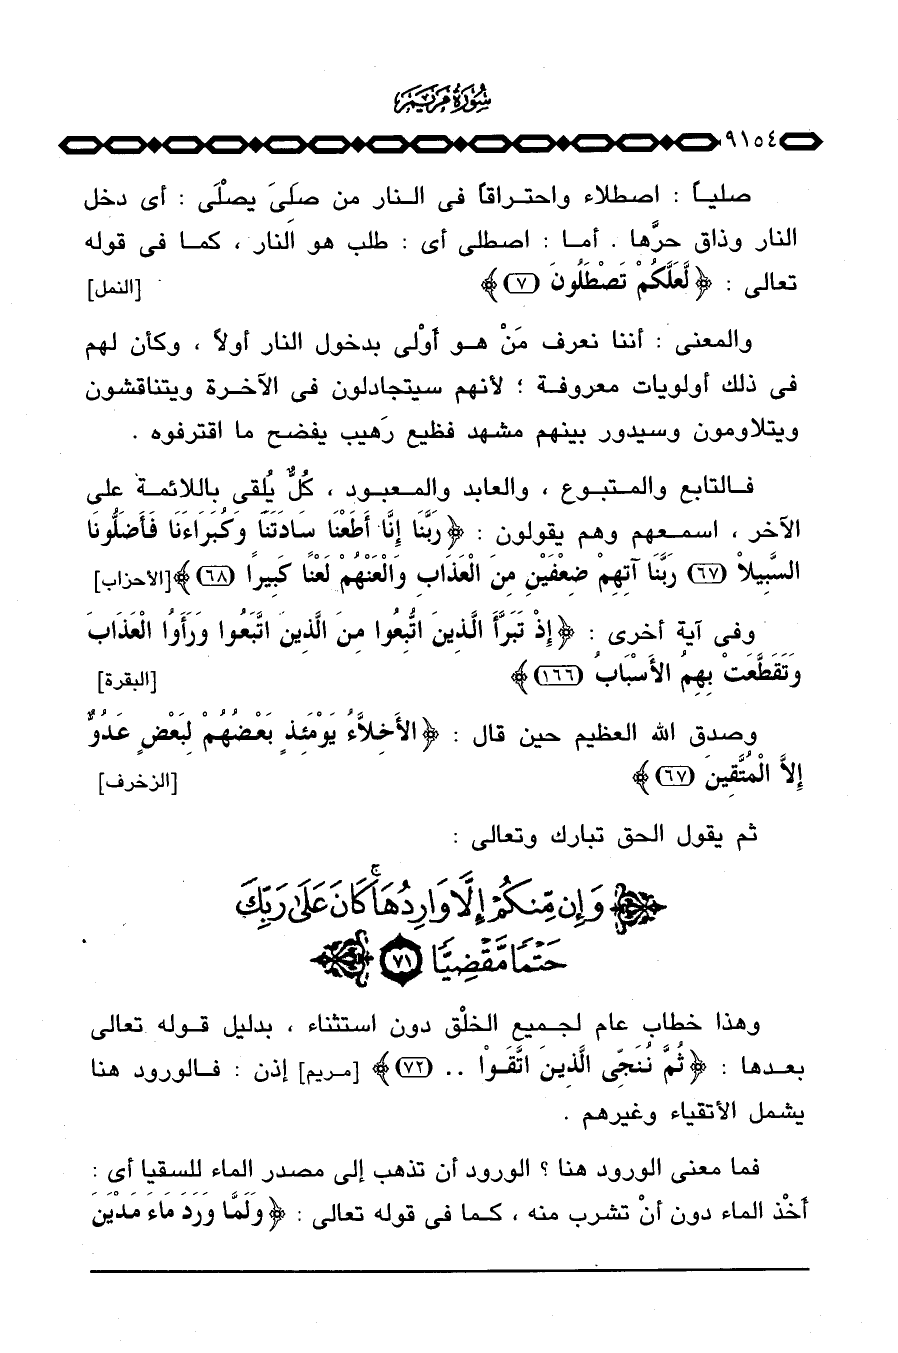 سورة مريم
٩١٥٤
صلياً : اصطلاء واحتراقاً فى النار من صَلَىَ يصلْى : أى دخل
النار وذاق حرَّها . أما : اصطلى أى : طلب هو النار ، كما فى قوله
تعالى : ﴿ لَّعَلَّكُمْ تَصْطَلُونَ (٧) ﴾ [النمل]
والمعنى : أننا نعرف مَنْ هو أَوْلى بدخول النار أولاً ، وكأن لهم
فى ذلك أولويات معروفة ؛ لأنهم سيتجادلون فى الآخرة ويتناقشون
ويتلاومون وسيدور بينهم مشهد فظيع رَهيب يفضح ما اقترفوه .
فالتابع والمتبوع ، والعابد والمعبود ، كُلٌّ يُلقى باللائمة على
الآخر ، اسمعهم وهم يقولون : ﴿ رَبَّنَا إِنَّا أَطَعْنَا سَادَتَنَا وَكُبَرَاءَنَا فَأَضَلُّونَا
السَّبِيلاْ (٦٧) رَبَّنَا آتِهِمْ ضِعْفَيْنِ مِنَ الْعَذَابِ وَالْعَنْهُمْ لَعْنًا كَبِيرًا (٦٨) ﴾ [الأحزاب]
وفى آية أخرى : ﴿ إِذْ تَبَرَّأَ الَّذِينَ اتُّبِعُوا مِنَ الَّذِينَ اتَّبَعُوا وَرَأَوُا الْعَذَابَ
وَتَقَطَّعَتْ بِهِمُ الأَسْبَابُ (١٦٦) ﴾ [البقرة]
وصدق الله العظيم حين قال : ﴿ الأَخِلاَّءُ يَوْمَئِذٍ بَعْضُهُمْ لِبَعْضٍ عَدُوٌّ
إِلاَّ الْمُتَّقِينَ (٦٧) ﴾ [الزخرف]
ثم يقول الحق تبارك وتعالى :
﴿ وَإِن مِّنكُمْ إِلَّا وَارِدُهَا ۚ كَانَ عَلَىٰ رَبِّكَ
حَتْمًا مَّقْضِيًّا (٧١) ﴾
وهذا خطاب عام لجميع الخلْق دون استثناء ، بدليل قوله تعالى
بعدها : ﴿ ثُمَّ نُنَجِّى الَّذِينَ اتَّقَوْا .. (٧٢) ﴾ [مريم] إذن : فالورود هنا
يشمل الأتقياء وغيرهم .
فما معنى الورود هنا ؟ الورود أن تذهب إلى مصدر الماء للسقيا أى :
أَخْذ الماء دون أنْ تشرب منه ، كما فى قوله تعالى : ﴿ وَلَمَّا وَرَدَ مَاءَ مَدْيَنَ